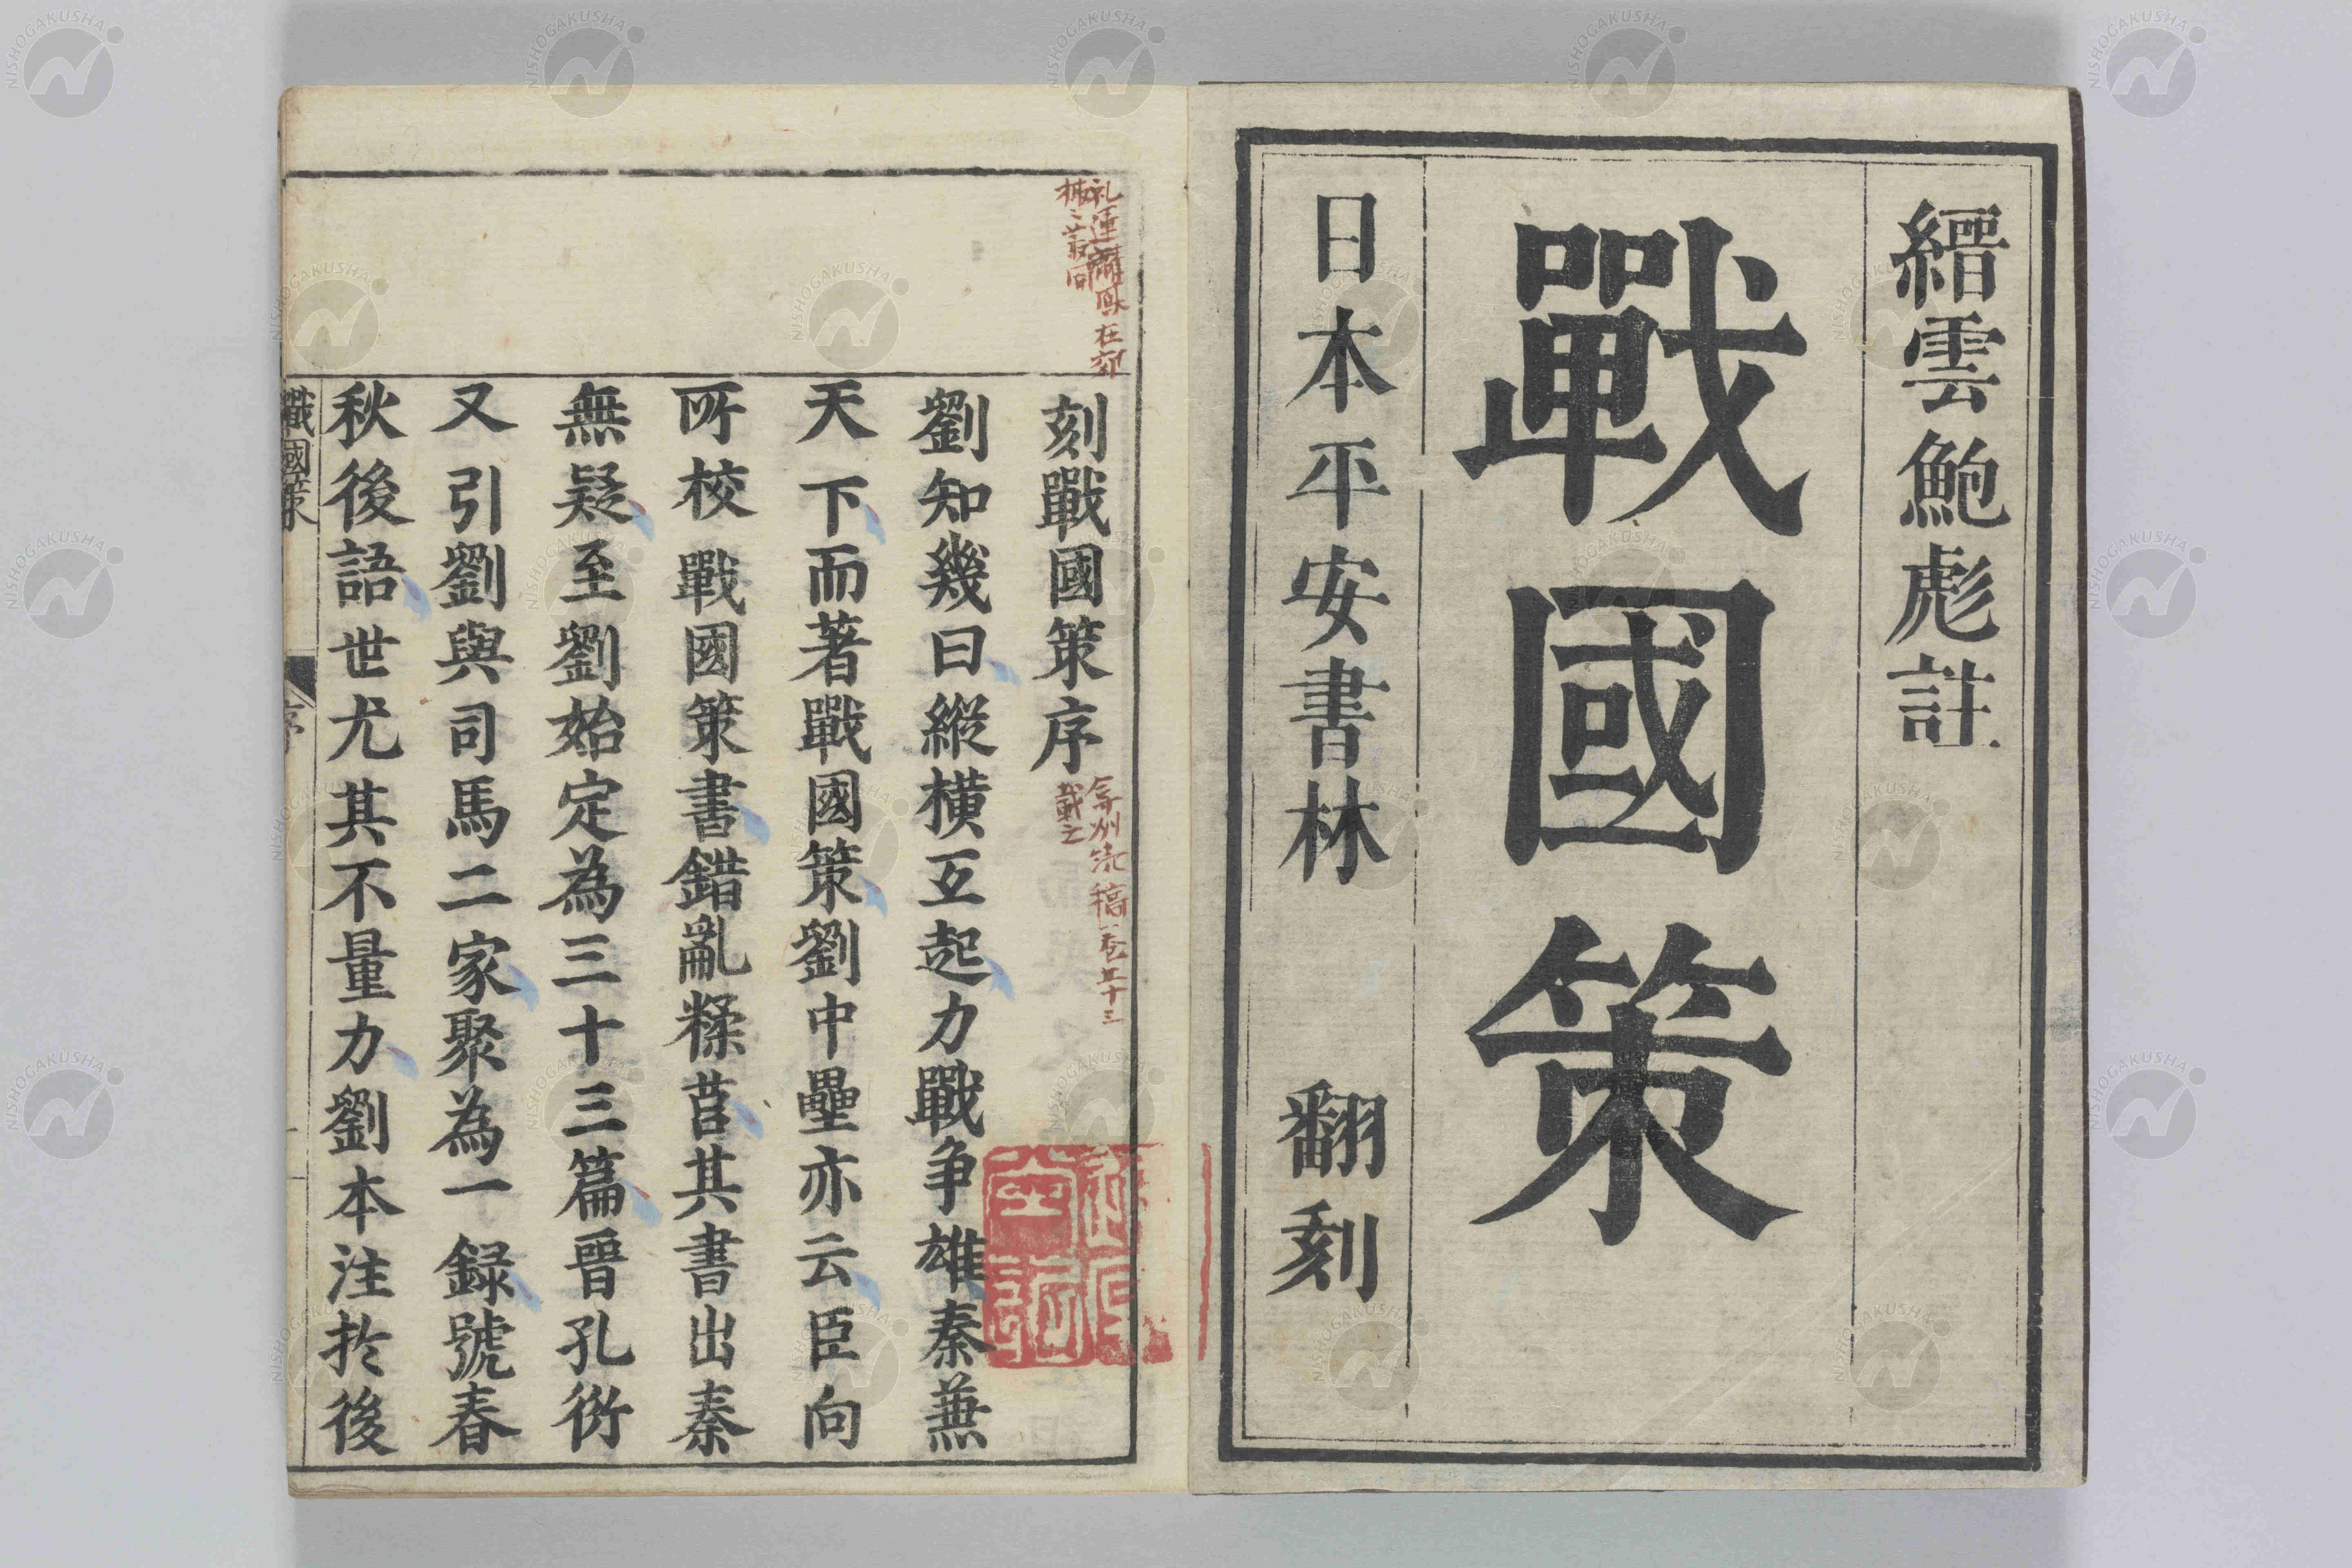 縉雲鮑彪註
戰國策
日本平安書林 翻刻
刻戰國策序
弇州続稿卷五十三
載之
劉知幾曰縱橫互起力戰爭雄秦兼
天下而著戰國策劉中壘亦云臣向
所校戰國策書錯亂糅莒其書出秦
無疑至劉始定為三十三篇晉孔衍
又引劉與司馬二家聚為一録號春
秋後語世尤其不量力劉本注扵後
戰國策 序
NISHOGAKUSHA